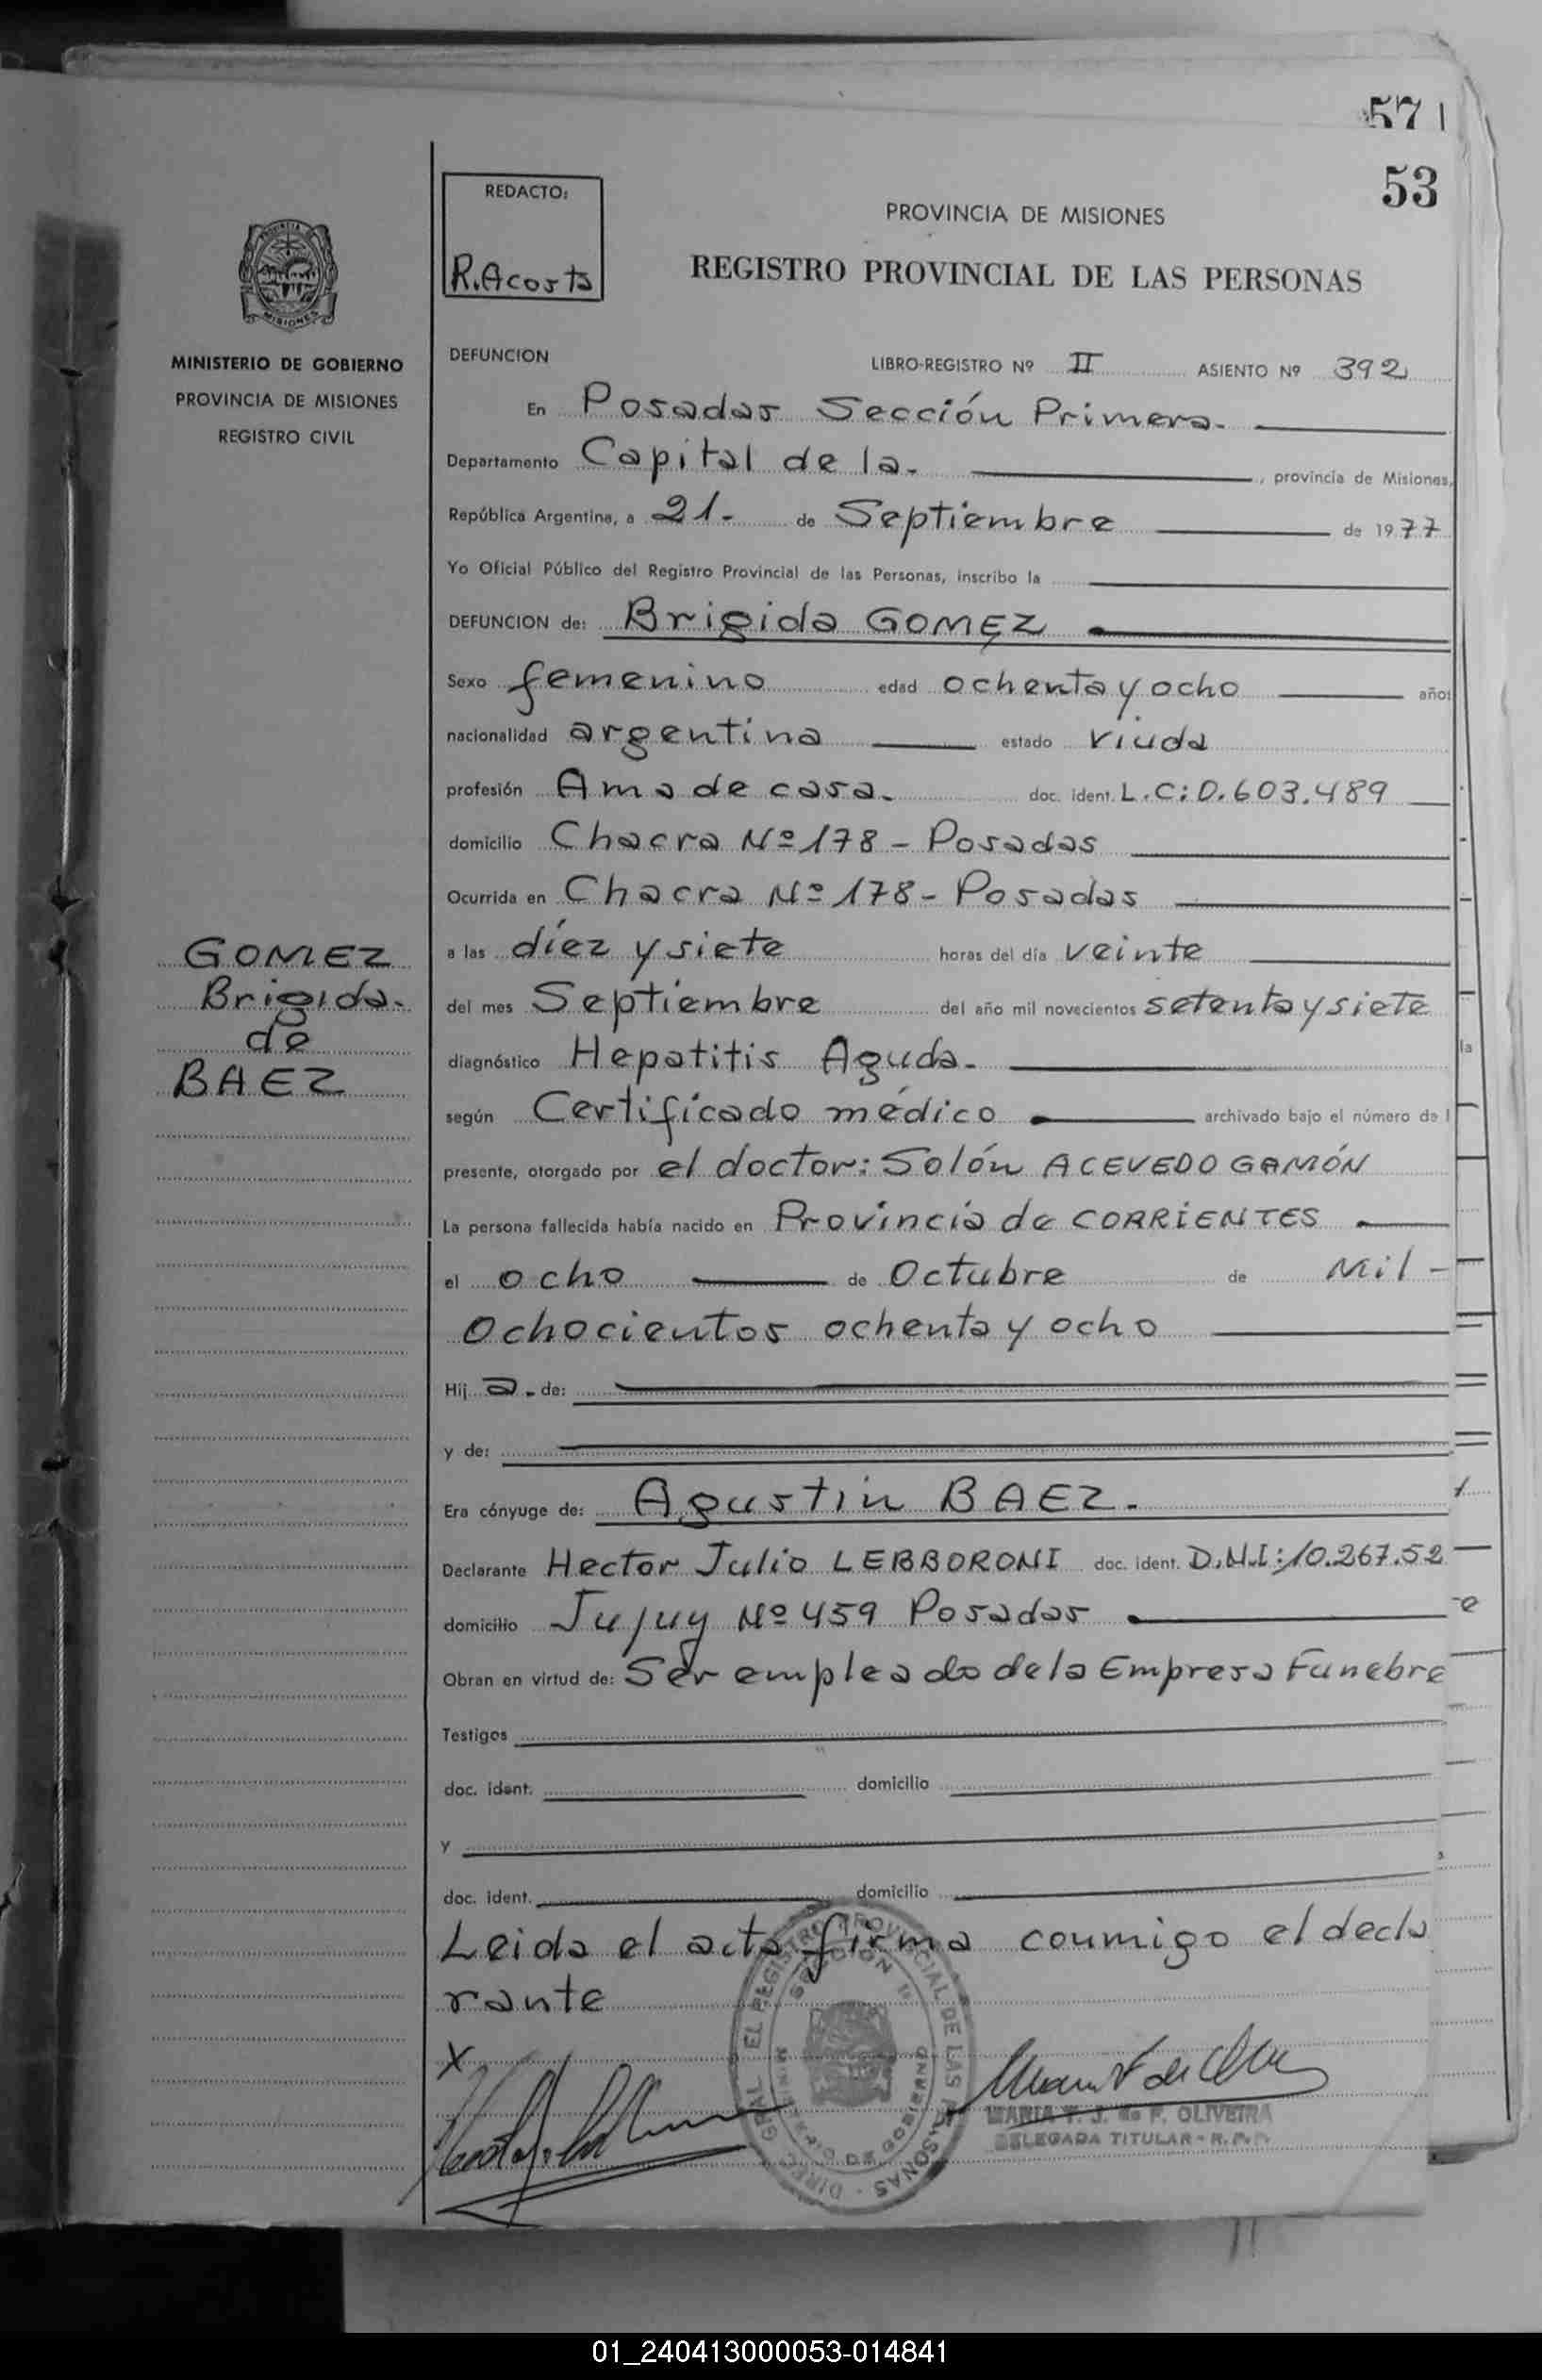 571
53
REDACTO:
R. Acosta
PROVINCIA DE MISIONES
REGISTRO PROVINCIAL DE LAS PERSONAS
MINISTERIO DE GOBIERNO
PROVINCIA DE MISIONES
REGISTRO CIVIL
DEFUNCION LIBRO-REGISTRO Nº II ASIENTO Nº 392
En Posadas Sección Primera.
Departamento Capital de la. , provincia de Misiones,
República Argentina, a 21. de Septiembre de 1977
Yo Oficial Público del Registro Provincial de las Personas, inscribo la
DEFUNCION de: Brigida GOMEZ
Sexo femenino edad ochenta y ocho años
nacionalidad argentina estado viuda
profesión Ama de casa. doc. ident. L.C: 0.603.489
domicilio Chacra Nº 178 - Posadas
Ocurrida en Chacra Nº 178 - Posadas
GOMEZ
Brigida.
de
BAEZ
a las díez y siete horas del día veinte
del mes Septiembre del año mil novecientos setenta y siete
diagnóstico Hepatitis Aguda.
según Certificado médico archivado bajo el número de l
presente, otorgado por el doctor: Solón ACEVEDO GAMÓN
La persona fallecida había nacido en Provincia de CORRIENTES
el ocho de Octubre de Mil -
Ochocientos ochenta y ocho
Hij a. de:
y de:
Era cónyuge de: Agustin BAEZ.
Declarante Hector Julio LEBBORONI doc. ident. D.N.I: 10.267.52
domicilio Jujuy Nº 459 Posadas
Obran en virtud de: Ser empleado de la Empresa Funebre
Testigos
doc. ident. domicilio
y
doc. ident. domicilio
Leida el acta firma conmigo el decla
rante
X
DIREC. GRAL EL REGISTRO PROVINCIAL DE LAS PERSONAS
MINISTERIO DE GOBIERNO
MARIA T. J. de F. OLIVEIRA
DELEGADA TITULAR - R.P.P.
01_240413000053-014841